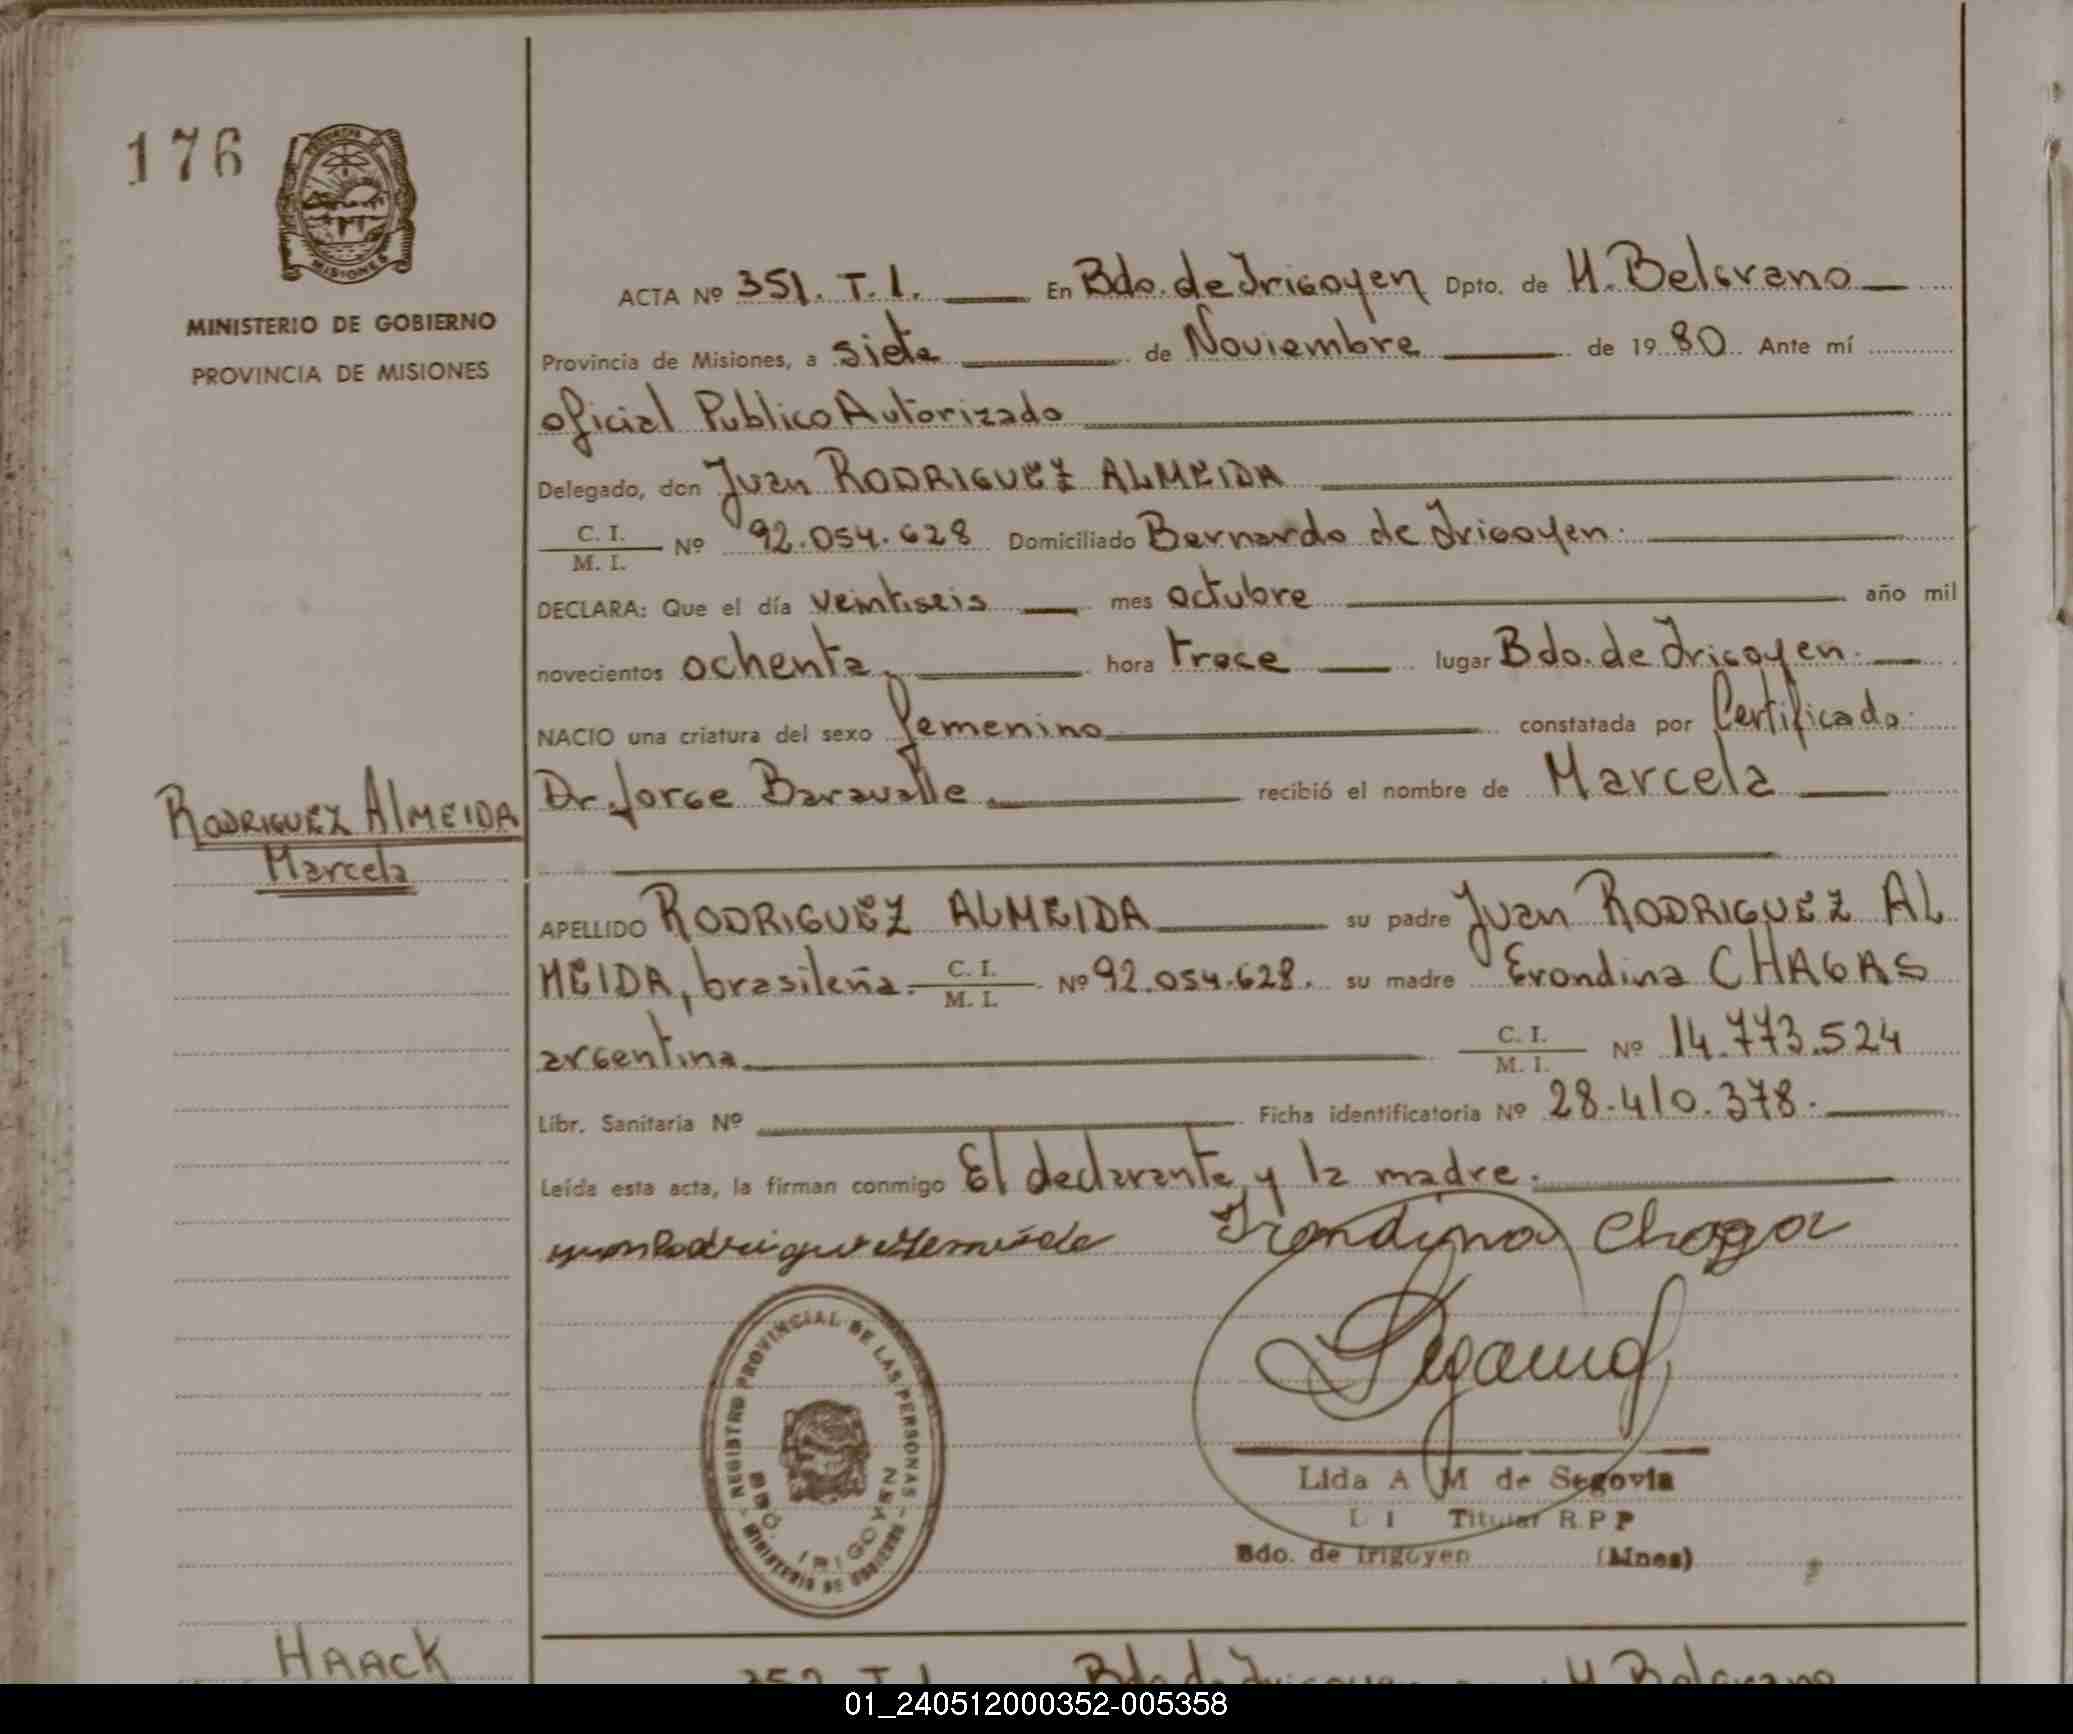 176
MISIONES
MINISTERIO DE GOBIERNO
PROVINCIA DE MISIONES
RODRIGUEZ ALMEIDA
Marcela
HAACK
ACTA Nº 351. T. I. En Bdo. de Irigoyen Dpto. de M. Belgrano
Provincia de Misiones, a siete de Noviembre de 19 80 Ante mí
oficial Publico Autorizado
Delegado, don Juan RODRIGUEZ ALMEIDA
C. I. / M. I. Nº 92.054.628 Domiciliado Bernardo de Irigoyen.
DECLARA: Que el día veintiseis mes octubre año mil
novecientos ochenta, hora trece lugar Bdo. de Irigoyen.
NACIO una criatura del sexo femenino constatada por Certificado.
Dr. Jorge Baravalle recibió el nombre de Marcela
APELLIDO RODRIGUEZ ALMEIDA su padre Juan RODRIGUEZ AL
MEIDA, brasileña. C. I. / M. I. Nº 92.054.628. su madre Erondina CHAGAS
argentina C. I. / M. I. Nº 14.773.524
Libr. Sanitaria Nº Ficha identificatoria Nº 28.410.378.
Leída esta acta, la firman conmigo El declarante y la madre.
Juan Rodrigues Almeida Irondina Chaga
REGISTRO PROVINCIAL DE LAS PERSONAS - MINISTERIO DE GOBIERNO -
BDO. IRIGOYEN
Lida A M de Segovia
D I Titular R.P P
Bdo. de Irigoyen (Mnes)
352 T. I. Bdo. de Irigoyen M. Belgrano
01_240512000352-005358